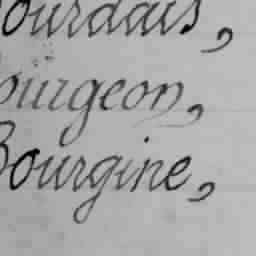 ourdais,
ourgeon,
Bourgine,